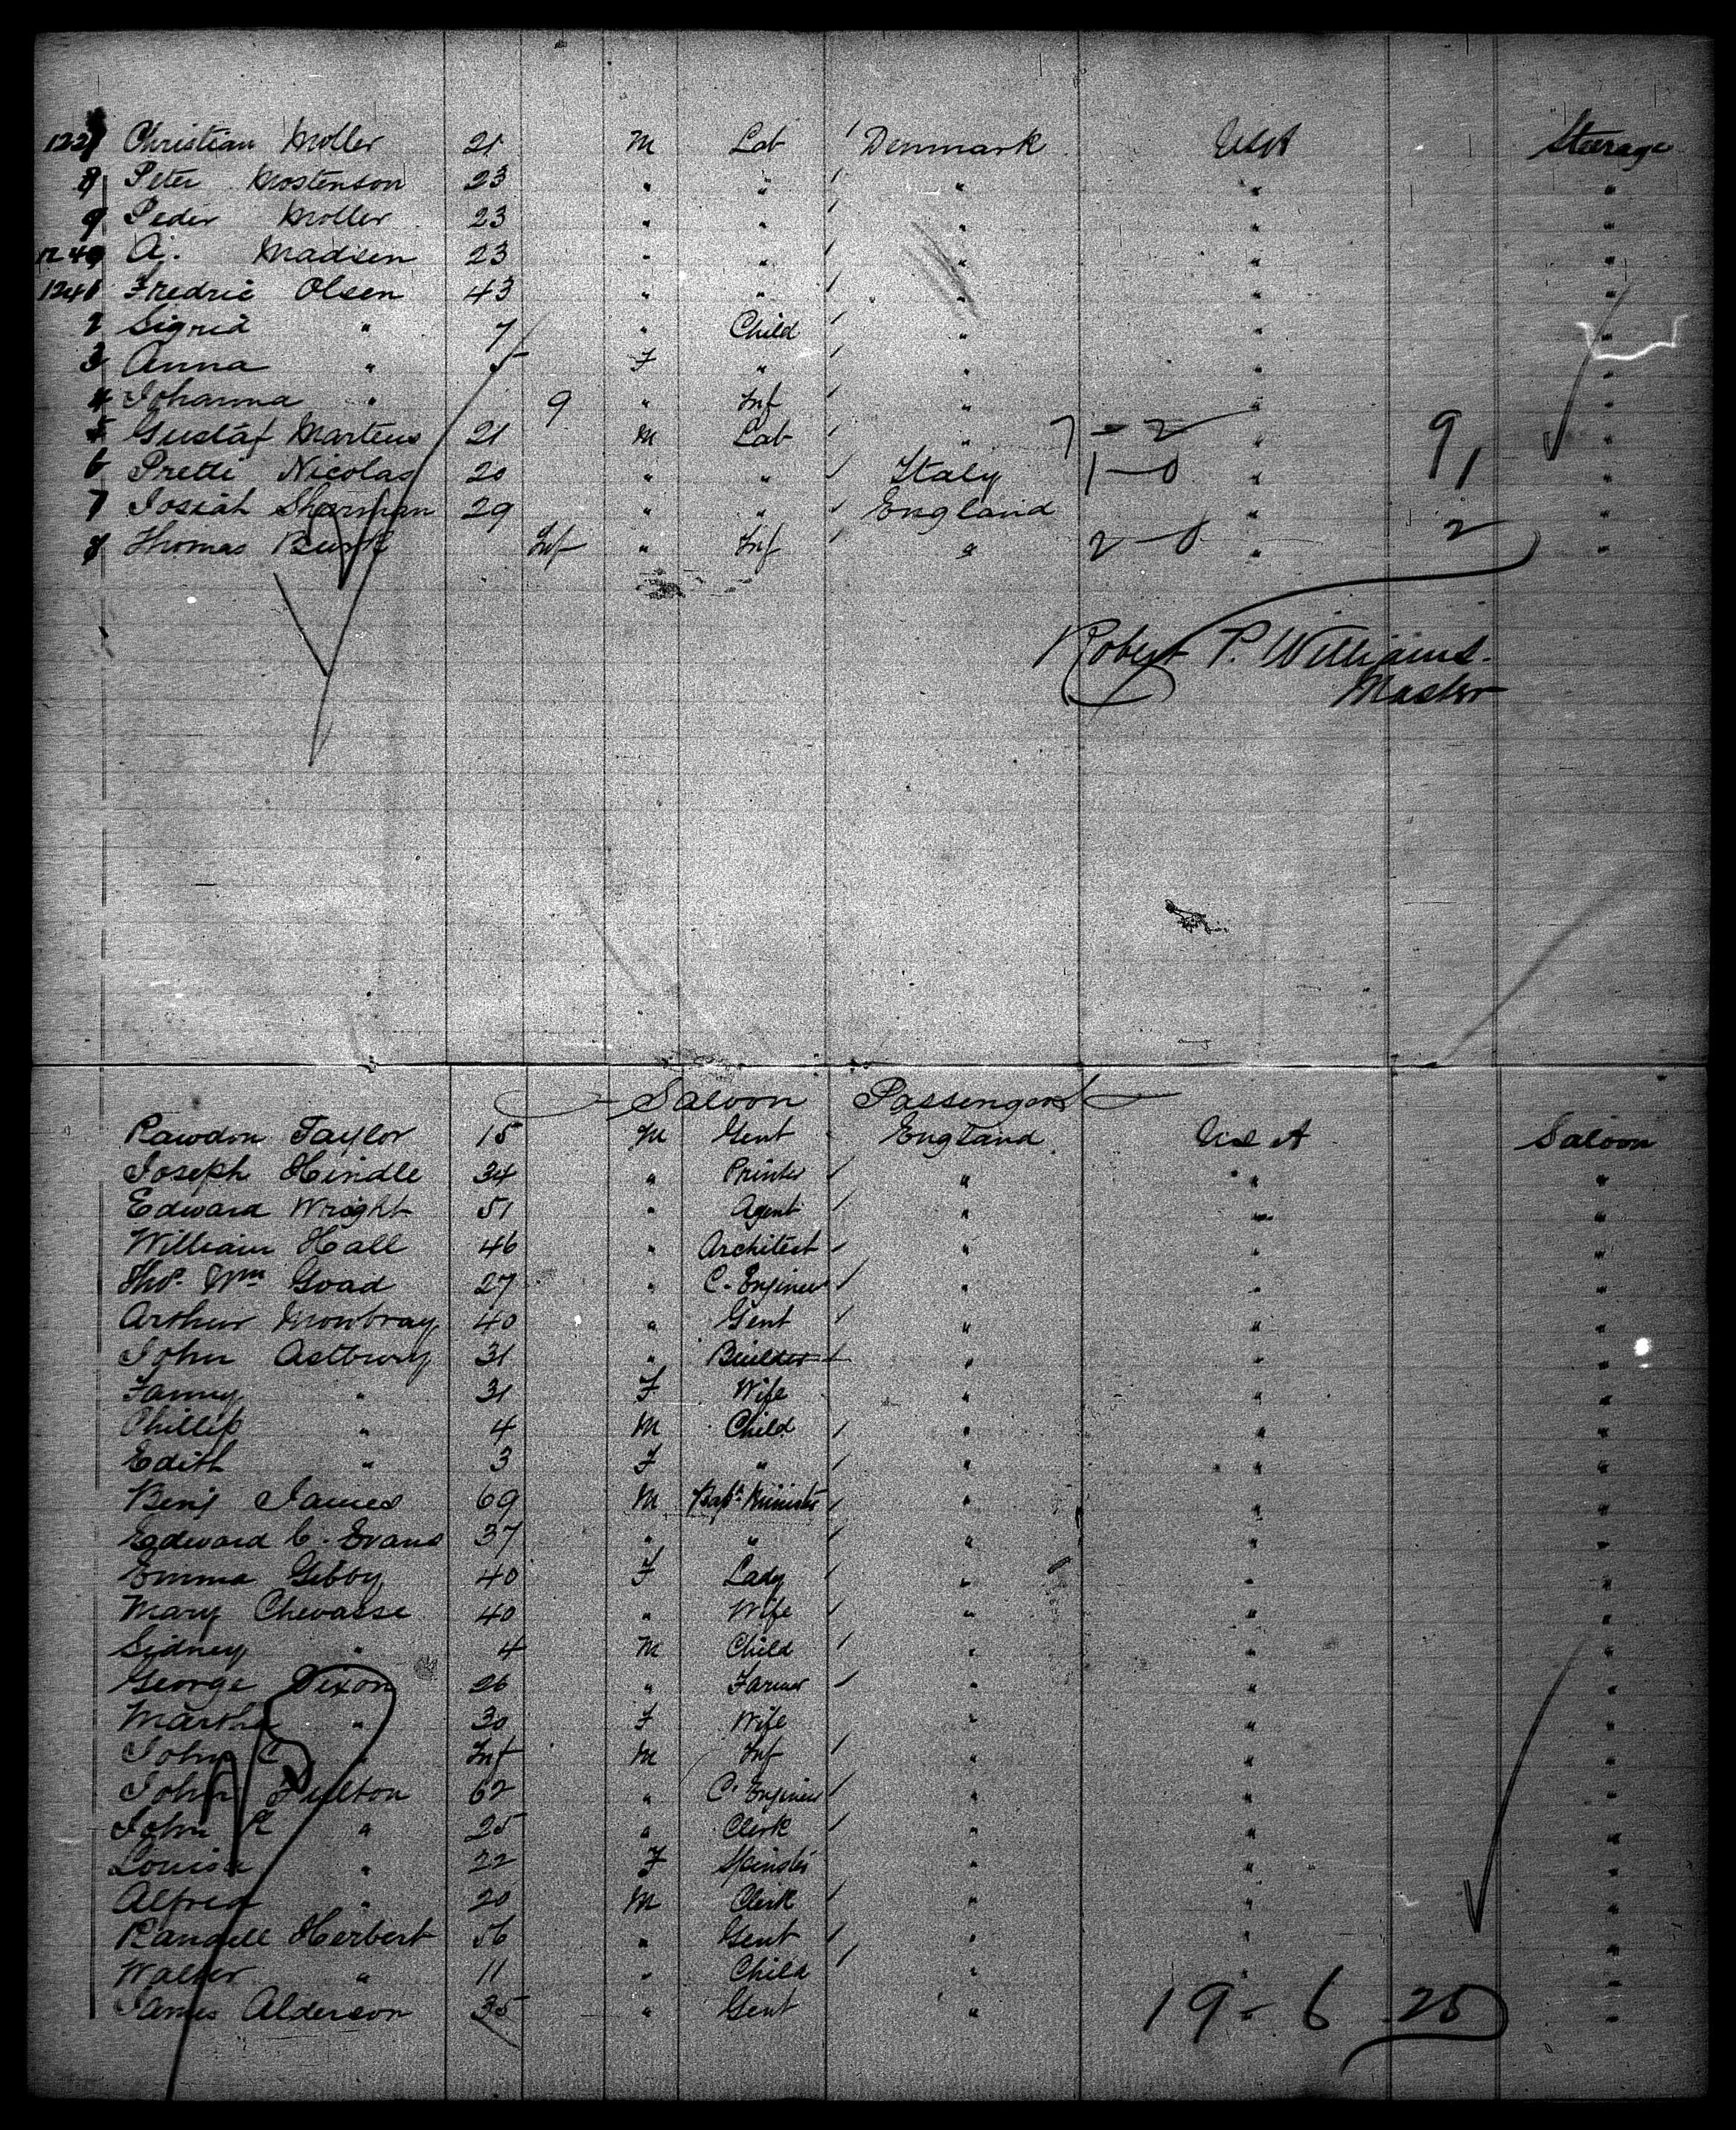 Christian Moller 21 M Lab Denmark USA Steerage
8 Peter Mostenson 23 " " " " "
9 Peder Moller 23 " " " " "
1240 A. Madsen 23 " " " " "
1241 Fredric Olsen 43 " " " " "
2 Sigrid " 7 " Child " " "
3 Anna " 5 F " " " "
4 Johanna " 9 " Inf " " "
5 Gustaf Martens 21 M Lab " 7-2 " 9 "
6 Prette Nicolas 20 " " Italy 1-0 " 1 "
7 Josiah Sharman 29 " " England " "
8 Thomas Burk Inf " Inf " 2-0 " 2 "
Robert P. Williams.
Master
Saloon Passengers
Rawdon Taylor 15 M Gent England USA Saloon
Joseph Hindle 34 " Printer " " "
Edward Wright 51 " Agent " " "
William Hall 46 " Architect " " "
Thos. Wm Goad 27 " C. Engineer " " "
Arthur Mowbray 40 " Gent " " "
John Astbury 31 " Builder " " "
Fanny " 31 F Wife " " "
Phillip " 4 M Child " " "
Edith " 3 F " " " "
Benj James 69 M Bapt. Minister " " "
Edward C. Evans 37 " " " " "
Emma Gibby 40 F Lady " " "
Mary Chevasse 40 " Wife " " "
Sidney " 4 M Child " " "
George Dixon 26 " Farmer " " "
Martha " 30 F Wife " " "
John C " Inf M Inf " " "
John Fulton 62 " C. Engineer " " "
John R " 25 " Clerk " " "
Louisa " 22 F Spinster " " "
Alfred " 20 M Clerk " " "
Randell Herbert 56 " Gent " " "
Walter " 11 " Child " " "
James Alderson 35 " Gent " 19-6 25 "